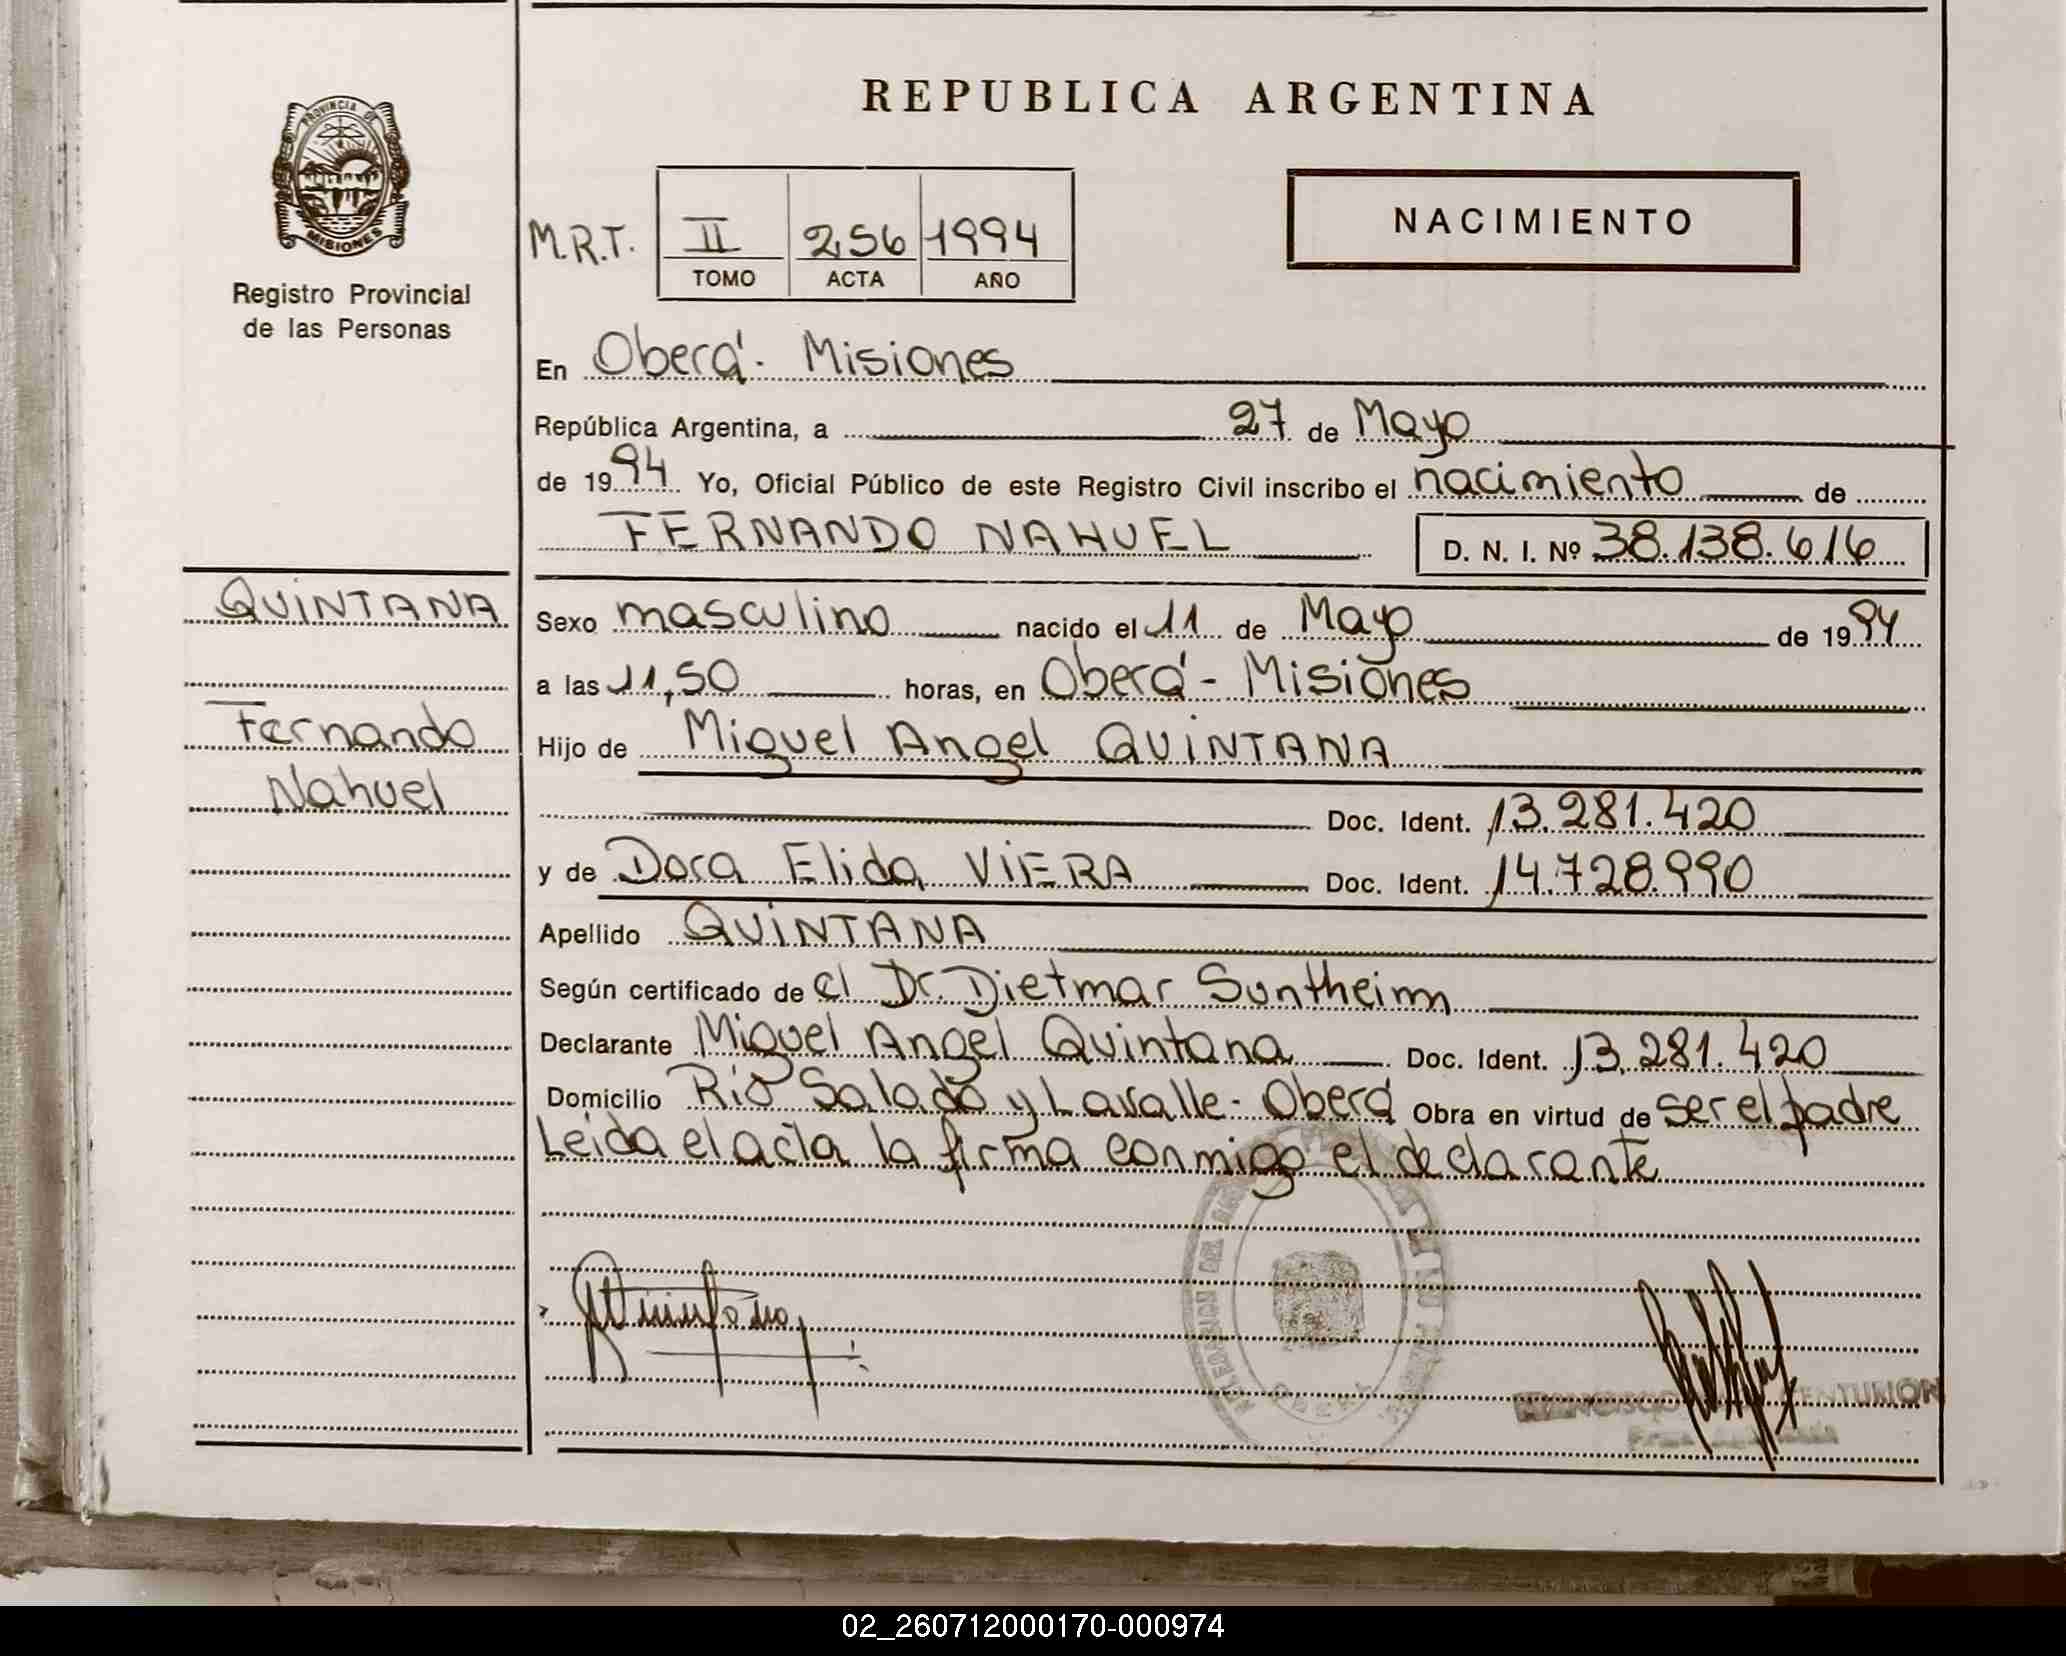 REPUBLICA ARGENTINA
PROVINCIA DE
MISIONES
Registro Provincial
de las Personas
M.R.T. II 256 1994
TOMO ACTA AÑO
NACIMIENTO
En Oberá - Misiones
República Argentina, a 27 de Mayo
de 1994 Yo, Oficial Público de este Registro Civil inscribo el nacimiento de
FERNANDO NAHUEL D. N. I. Nº 38.138.616
QUINTANA
Fernando
Nahuel
Sexo masculino nacido el 11 de Mayo de 1994
a las 11,50 horas, en Oberá - Misiones
Hijo de Miguel Angel QUINTANA
Doc. Ident. 13.281.420
y de Dora Elida VIERA Doc. Ident. 14.728.990
Apellido QUINTANA
Según certificado de el Dr. Dietmar Suntheim
Declarante Miguel Angel Quintana Doc. Ident. 13.281.420
Domicilio Rio Salado y Lavalle - Oberá Obra en virtud de ser el padre
Leida el acta la firma conmigo el declarante
FRANCISCO CENTURION
02_260712000170-000974